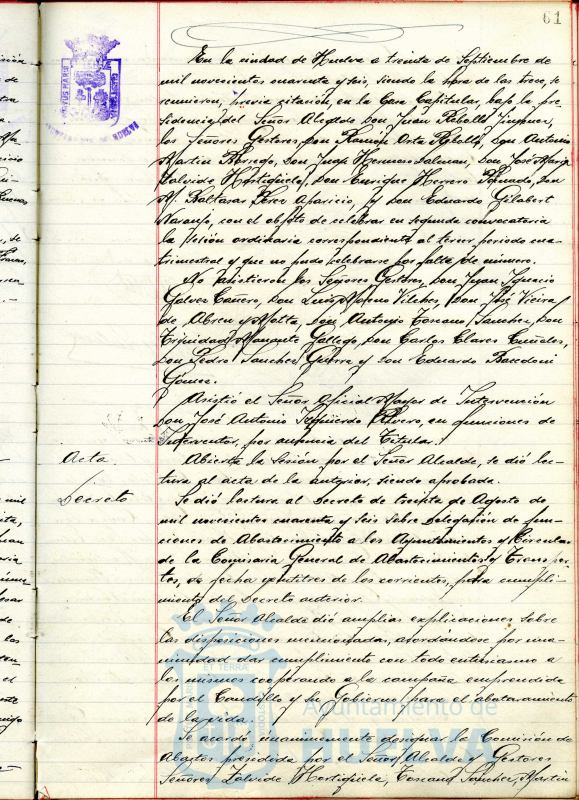 61
En la ciudad de Huelva a treinta de Septiembre de
mil novecientos cuarenta y seis, siendo la hora de las trece, se
reunieron, previa citación, en la Casa Capitular, bajo la pre-
sidencia del Señor Alcalde Don Juan Rebollo Jimenez,
los Señores Gestores, Don Ramón Orta Rebollo, Don Antonio
Martin Borrego, Don Juan Hermoso Dalmau, Don José María
Zalvide Hortigüela, Don Enrique Herrero Don
Mº Baltasar Perez Aparicio, y Don Eduardo Gilabert
Naranjo, con el objeto de celebrar en segunda convocatoria
la sesión ordinaria correspondiente al tercer periodo cua-
trimestral y que no pudo celebrarse por falta de número.
No asistieron los Señores Gestores, Don Juan Ignacio
Galvez Cañero, Don Luis Moreno Vilches, Don José Vieira
de Abreu y Motta, Don Antonio Toscano Sanchez, Don
Trinidad Gallego, Don Carlos Clares
Don Pedro Sanchez Guerra y Don Eduardo
Gómez.
Asistió el Señor Oficial Mayor de Intervención
Don José Antonio Izquierdo en funciones de
Interventor, por ausencia del Titular.
Acta.
Abierta la Sesión por el Señor Alcalde, se dió lec-
tura al acta de la anterior, siendo aprobada.
Decreto
Se dió lectura al Decreto de treinta de Agosto de
mil novecientos cuarenta y seis sobre delegación de fun-
ciones de Abastecimiento a los Ayuntamientos y Circular
de la Comisaria General de Abastecimientos y Transpor-
tes, de fecha veintitres de los corrientes, para cumpli-
miento del Decreto anterior.
El Señor Alcalde dió amplias explicaciones sobre
las disposiciones mencionadas, acordándose por una-
nimidad dar cumplimiento con todo entusiasmo a
los mismos cooperando a la campaña emprendida
por el Caudillo y su Gobierno para el abaratamiento
de la vida.
Se acordó unanimemente designar la Comisión de
Abastos presidida por el Señor Alcalde y Gestores
Señores Zalvide Hortigüela, Toscano Sanchez, Martin
Ayuntamiento de
HUELVA